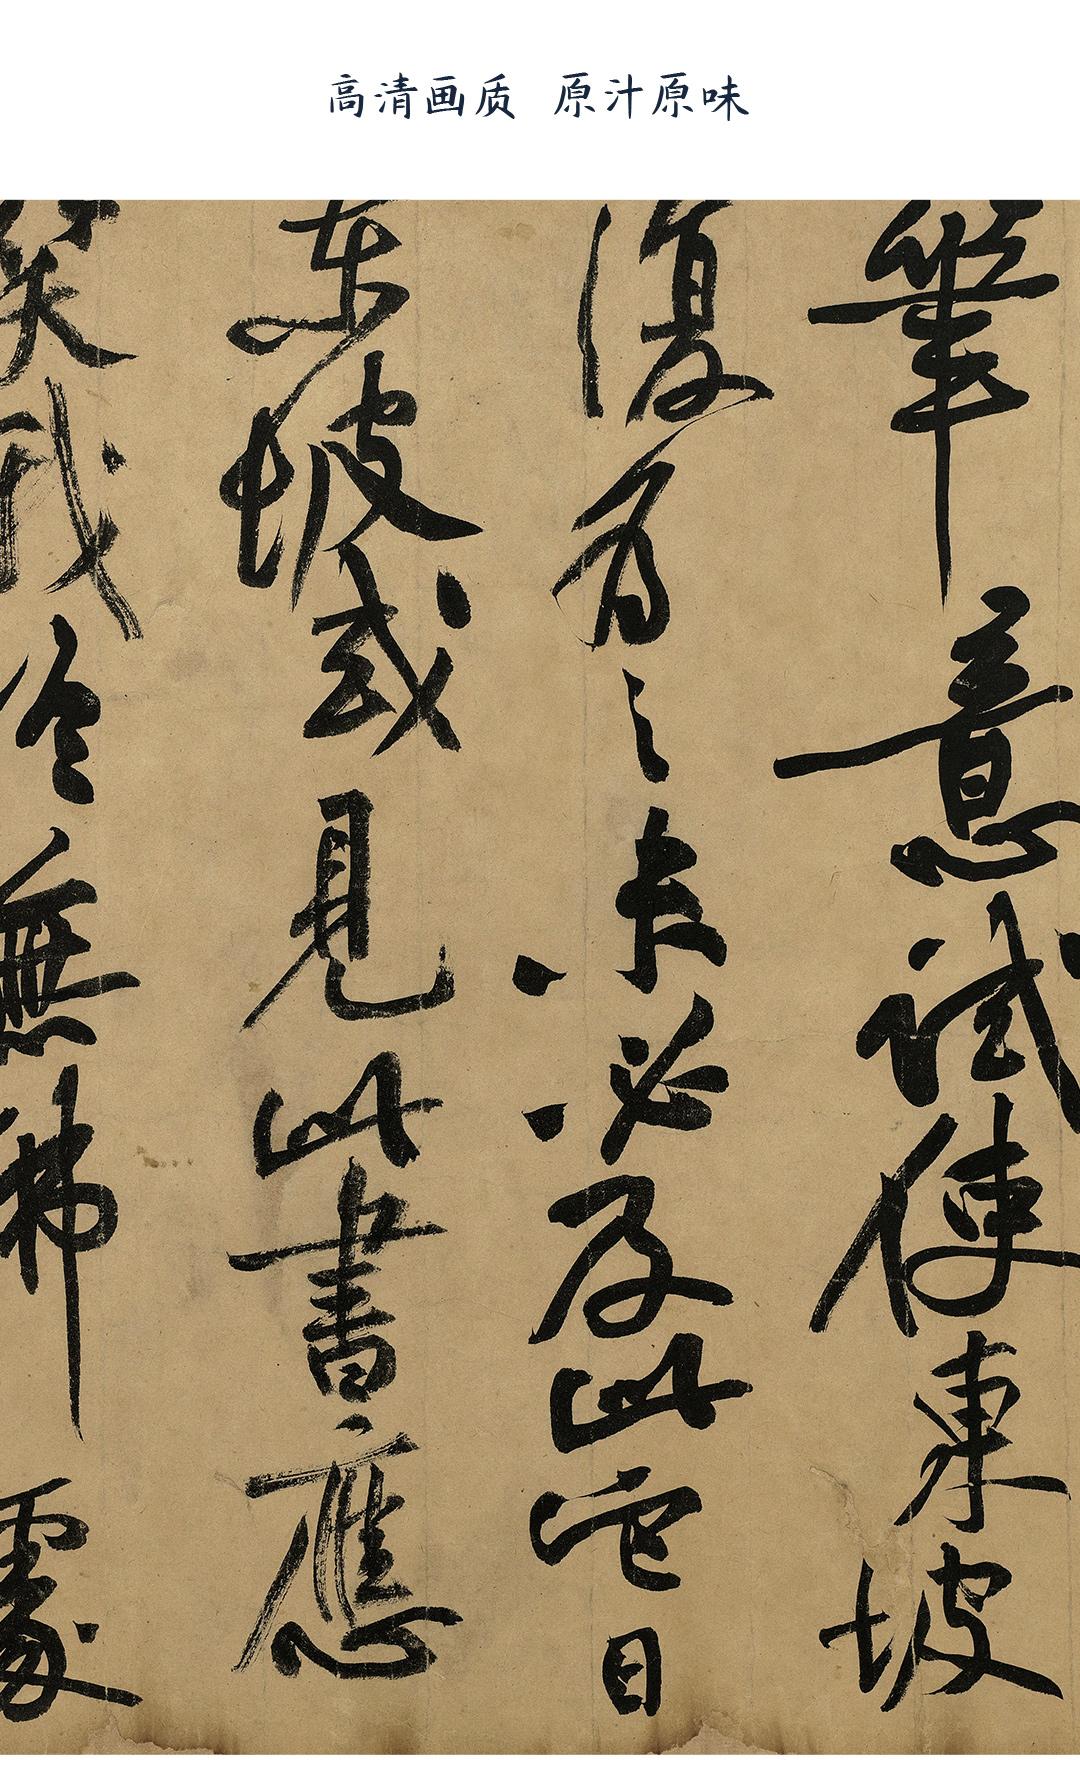 高清画质 原汁原味
筆意試使東坡
復為之未必及此它日
东坡或見此書應
笑我於無佛處